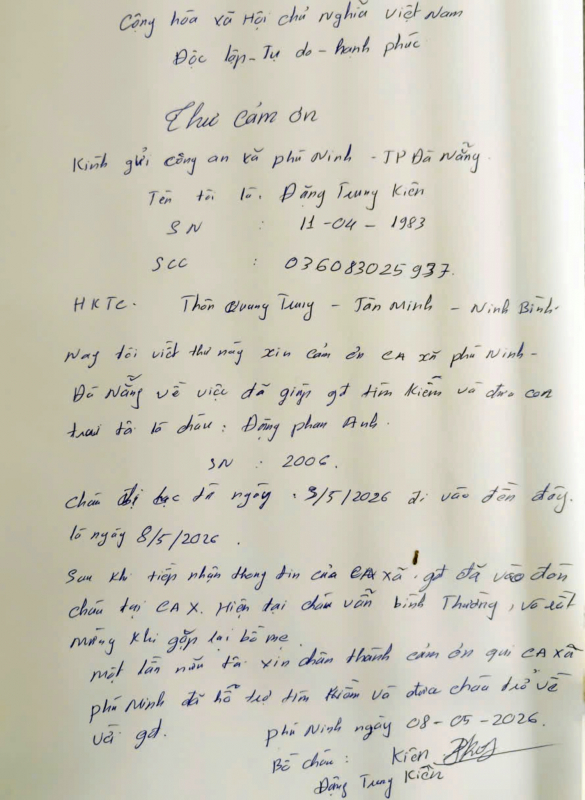 Cộng hòa xã Hội chủ nghĩa việt Nam
Độc lập - Tự do - hạnh phúc
Thư cảm ơn
Kính gửi công an xã phú Ninh - TP Đà Nẵng.
Tên tôi là. Đặng Trung Kiên
SN : 11-04-1983
SCC : 036083025937.
HKTC. Thôn Quang Trung - Tân Minh - Ninh Bình.
Nay tôi viết thư này xin cảm ơn CA xã phú Ninh -
Đà Nẵng về việc đã giúp gđ tìm Kiếm và đưa con
trai tôi là cháu: Đặng phan Anh.
SN : 2006.
cháu bị lạc từ ngày : 3/5/2026 đi vào đến đây.
là ngày 8/5/2026.
Sau khi tiếp nhận thông tin của CA xã, gđ đã vào đón
cháu tại CA X. Hiện tại cháu vẫn bình Thường, và rất
mừng khi gặp lại bố mẹ.
một lần nữa tôi xin chân thành cảm ơn quí CA xã
phú Ninh đã hỗ trợ tìm kiếm và đưa cháu trở về
với gđ.
phú Ninh ngày 08-05-2026.
Bố cháu : Kiên
Đặng Trung Kiên